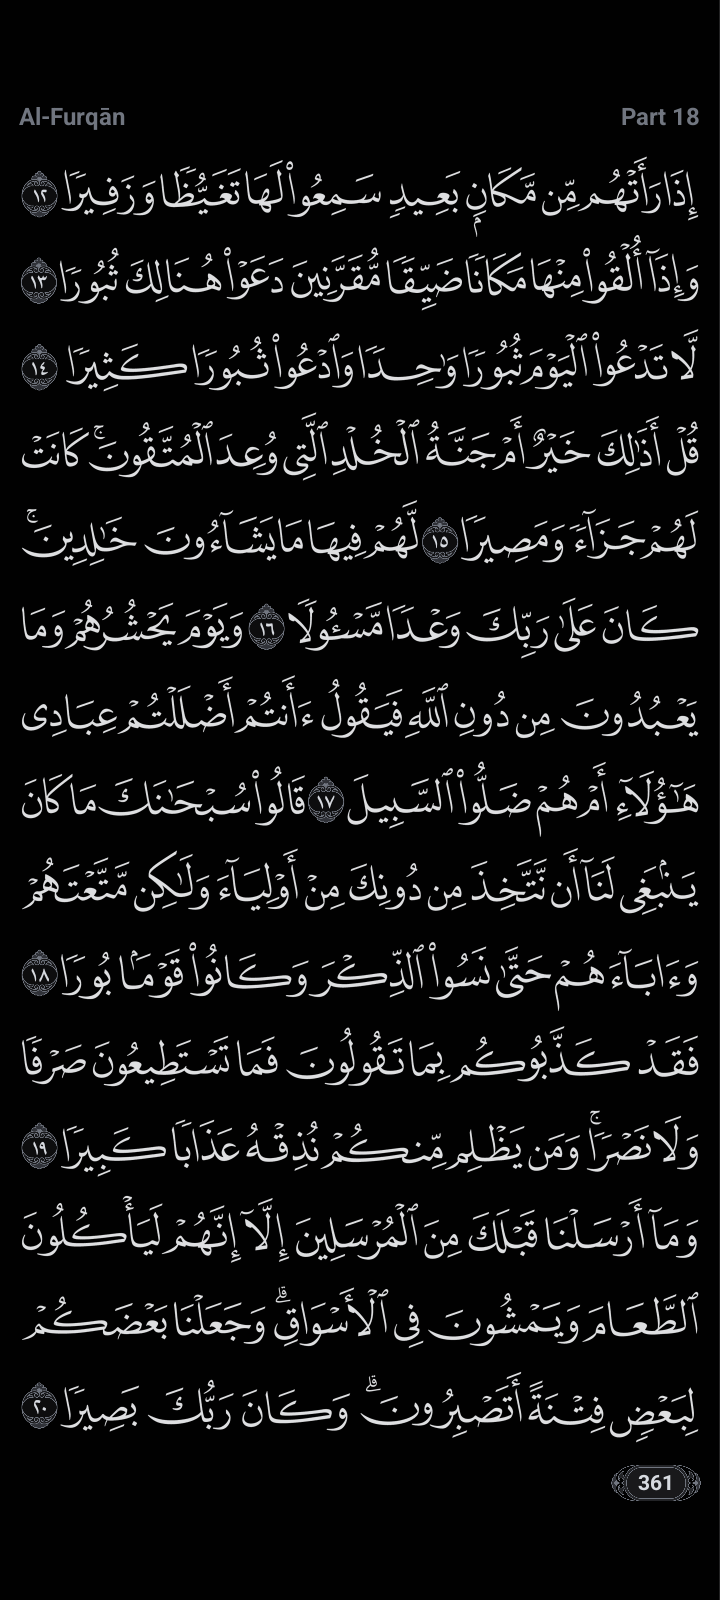 Al-Furqān Part 18
إِذَا رَأَتْهُم مِّن مَّكَانِۭ بَعِيدٖ سَمِعُواْ لَهَا تَغَيُّظٗا وَزَفِيرٗا ١٢
وَإِذَآ أُلۡقُواْ مِنۡهَا مَكَانٗا ضَيِّقٗا مُّقَرَّنِينَ دَعَوۡاْ هُنَالِكَ ثُبُورٗا ١٣
لَّا تَدۡعُواْ ٱلۡيَوۡمَ ثُبُورٗا وَٰحِدٗا وَٱدۡعُواْ ثُبُورٗا كَثِيرٗا ١٤
قُلۡ أَذَٰلِكَ خَيۡرٌ أَمۡ جَنَّةُ ٱلۡخُلۡدِ ٱلَّتِي وُعِدَ ٱلۡمُتَّقُونَۚ كَانَتۡ
لَهُمۡ جَزَآءٗ وَمَصِيرٗا ١٥ لَّهُمۡ فِيهَا مَا يَشَآءُونَ خَٰلِدِينَۚ
كَانَ عَلَىٰ رَبِّكَ وَعۡدٗا مَّسۡـُٔولٗا ١٦ وَيَوۡمَ يَحۡشُرُهُمۡ وَمَا
يَعۡبُدُونَ مِن دُونِ ٱللَّهِ فَيَقُولُ ءَأَنتُمۡ أَضۡلَلۡتُمۡ عِبَادِي
هَٰٓؤُلَآءِ أَمۡ هُمۡ ضَلُّواْ ٱلسَّبِيلَ ١٧ قَالُواْ سُبۡحَٰنَكَ مَا كَانَ
يَنۢبَغِي لَنَآ أَن نَّتَّخِذَ مِن دُونِكَ مِنۡ أَوۡلِيَآءَ وَلَٰكِن مَّتَّعۡتَهُمۡ
وَءَابَآءَهُمۡ حَتَّىٰ نَسُواْ ٱلذِّكۡرَ وَكَانُواْ قَوۡمَۢا بُورٗا ١٨
فَقَدۡ كَذَّبُوكُم بِمَا تَقُولُونَ فَمَا تَسۡتَطِيعُونَ صَرۡفٗا
وَلَا نَصۡرٗاۚ وَمَن يَظۡلِم مِّنكُمۡ نُذِقۡهُ عَذَابٗا كَبِيرٗا ١٩
وَمَآ أَرۡسَلۡنَا قَبۡلَكَ مِنَ ٱلۡمُرۡسَلِينَ إِلَّآ إِنَّهُمۡ لَيَأۡكُلُونَ
ٱلطَّعَامَ وَيَمۡشُونَ فِي ٱلۡأَسۡوَاقِۗ وَجَعَلۡنَا بَعۡضَكُمۡ
لِبَعۡضٖ فِتۡنَةً أَتَصۡبِرُونَۗ وَكَانَ رَبُّكَ بَصِيرٗا ٢٠
361